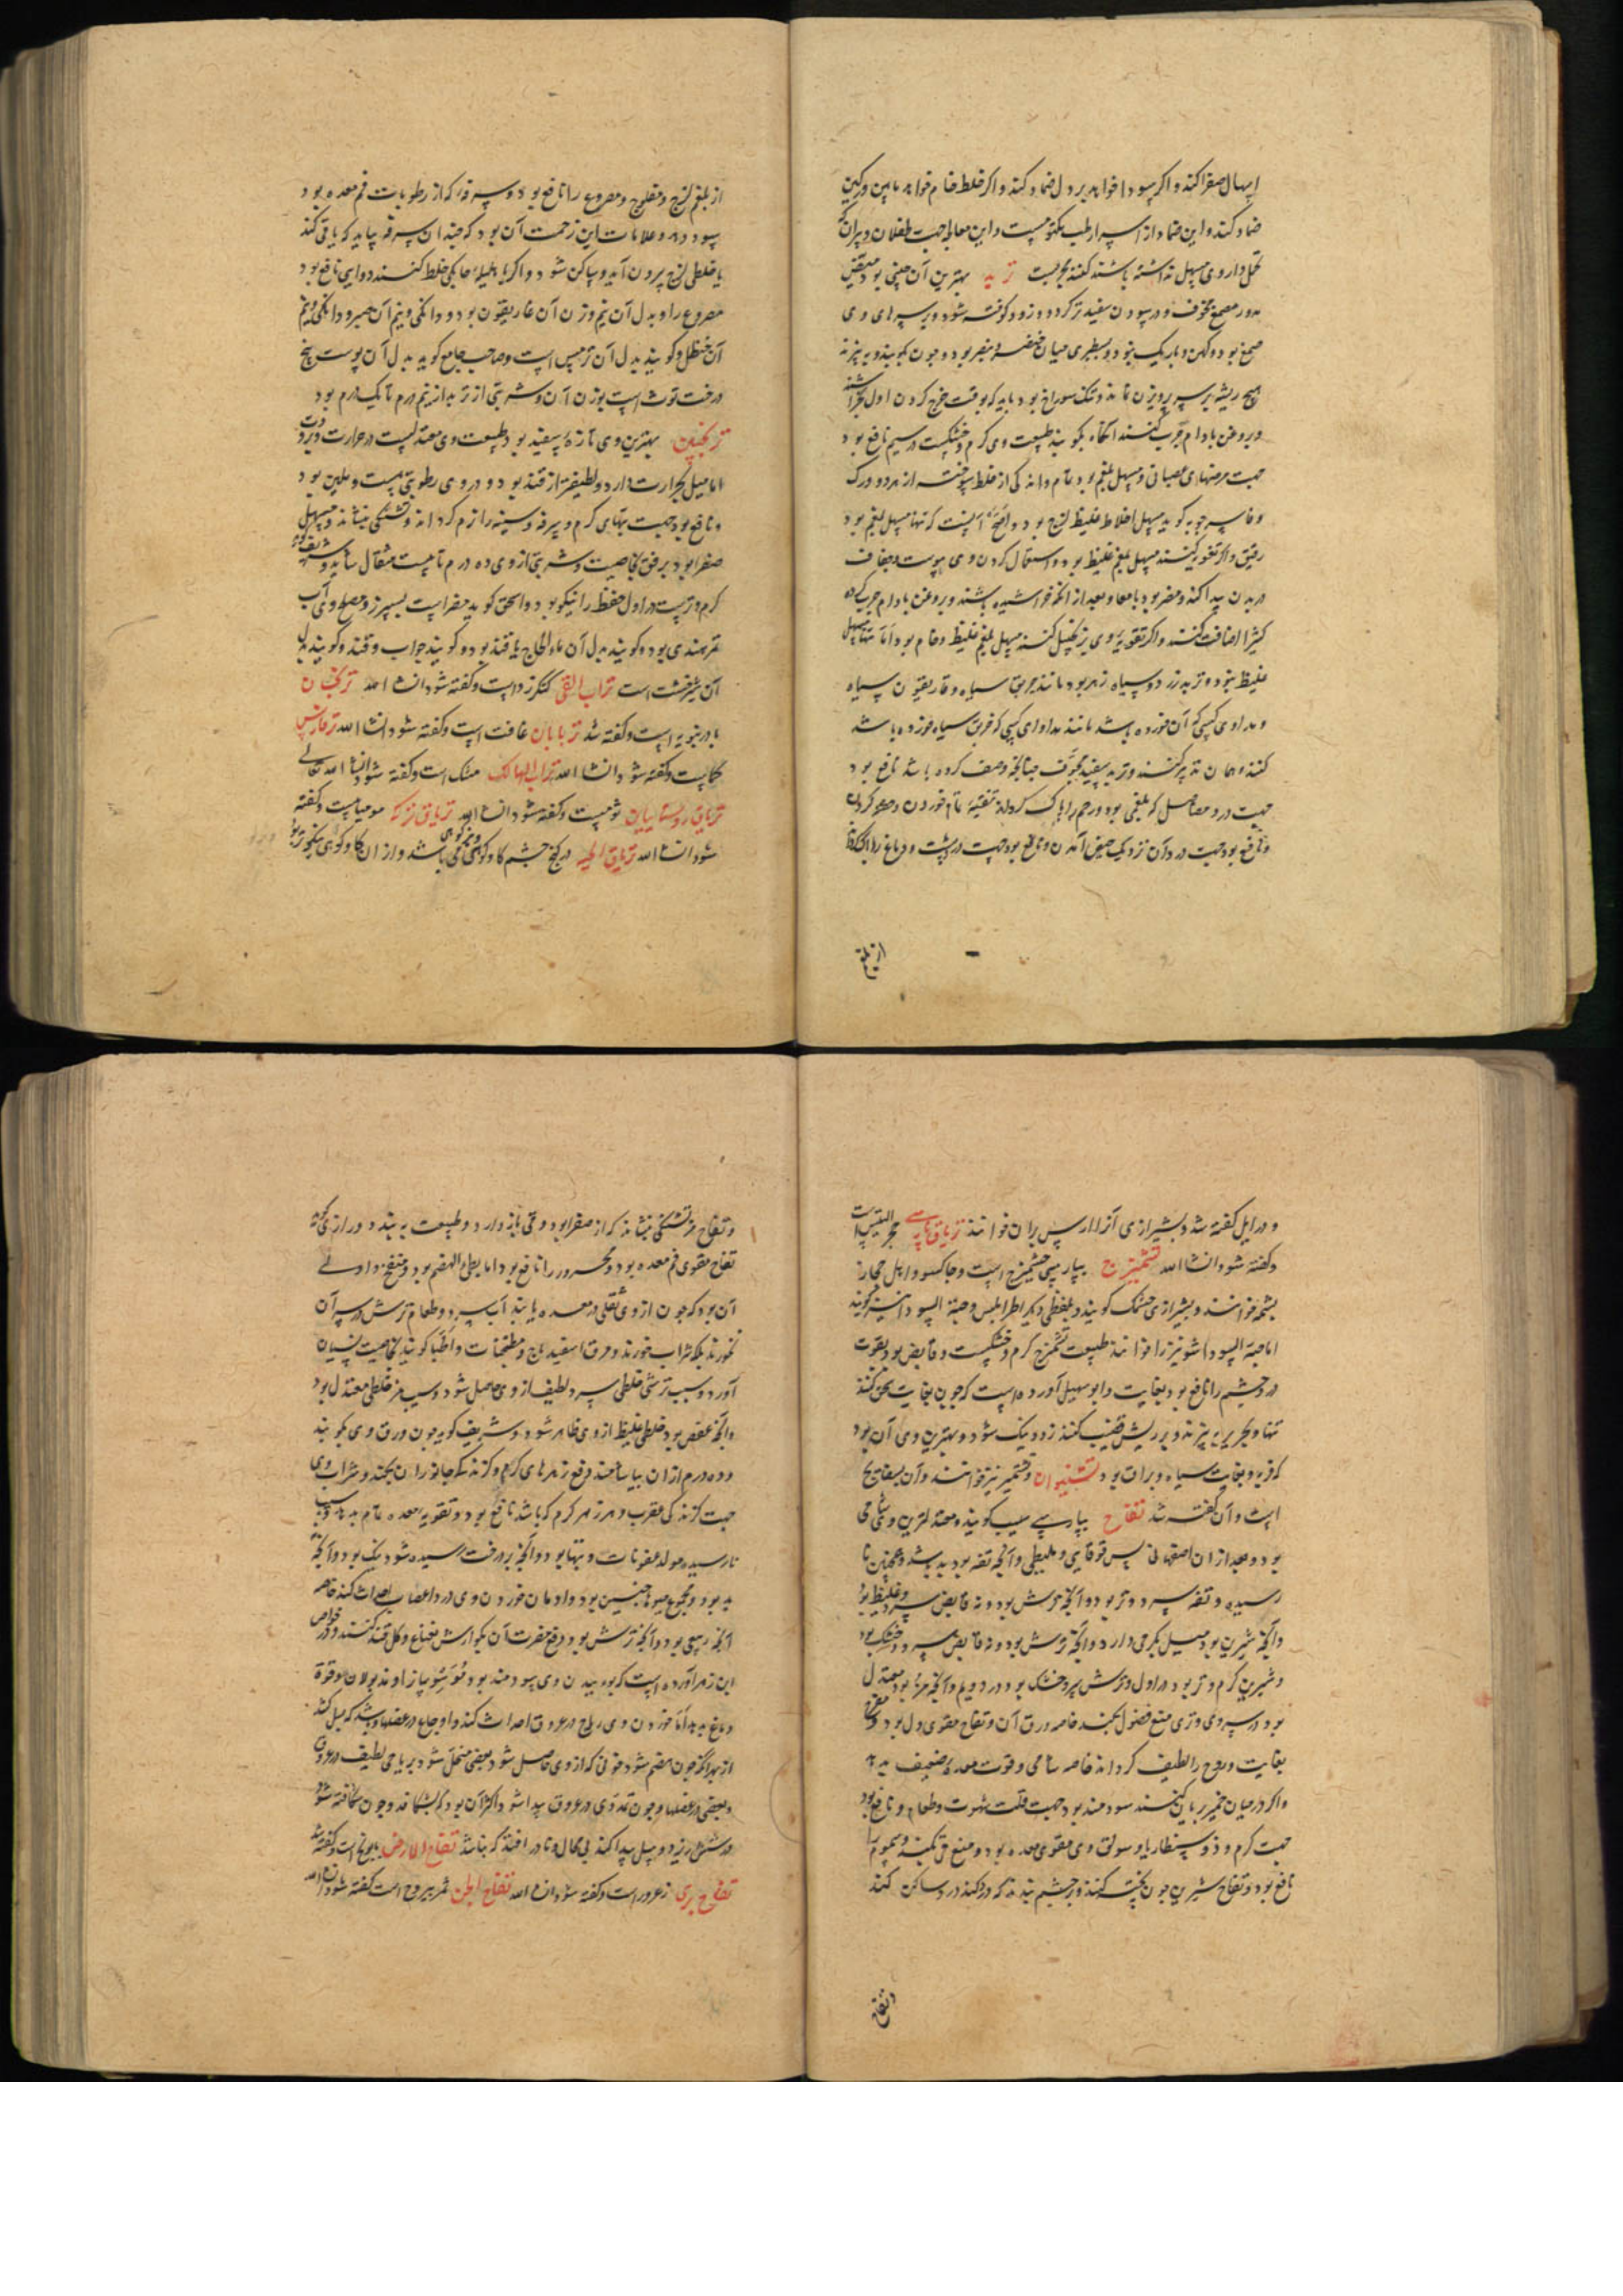 اسهال صفرا کند و اگر سودا خواهد بر دل ضماد کند و اگر خلط خام خواهد مابین ورکین
ضماد کند و این ضماد از اسرار طب مکتومست و این معالجه جهت طفلان و پیران که
تحمل داروی مسهل نداشته باشند کنند مجربست تربد بهترین آن چینی بود سفید
مدور مصمغ مجوف و در سودن سفیدتر گردد و زود کوفته شود و بر سرهای وی
صمغ بود و کهن و باریک نبود و بسطبری میان خنصر و بنصر بود و چون بکوبند و ببیزند
هیچ ریشه بر سر پرویزن نماند و تنک سوراخ بود باید که بوقت خرج کردن اول بخراشند
و بروغن بادام چرب کنند آنگاه بکوبند طبیعت وی گرم و خشکست در سیم نافع بود
جهت مرضهای عصبانی و مسهل بلغم بود تمام و اندکی از خلط سوخته از هر دو ورک
و ماسرجویه گوید مسهل اخلاط غلیظ لزج بود و اصح آنست که تنها مسهل بلغم بود
رقیق و اگر تقویه کنند مسهل بلغم غلیظ بود و استعمال کردن وی یبوست و جفاف
در بدن پیدا کند و مضر بود بامعا و بعد از آنکه خراشیده باشند و بروغن بادام چرب کرده
کتیرا اضافت کنند و اگر تقویه وی بزنجبیل کنند مسهل بلغم غلیظ و خام بود اما تنها مسهل
غلیظ نبود و تربد زرد و سیاه زهر بود مانند خربق سیاه و غاریقون سیاه
و مداوای کسی که آن خورده باشد مانند مداوای کسی که خربق سیاه خورده باشد
کنند و همان تدبیر کنند و تربد سفید مجوف چنانکه وصف کرده باشد نافع بود
جهت درد مفاصل که بلغمی بود و رحم را پاک گرداند تنقیه تمام خوردن و حمول کردن
و نافع بود جهت درد آن نزدیک حیض آمدن و نافع بود جهت درد پشت و دماغ را پاک کند
از بلغم
از بلغم لزج و مفلوج و مصروع را نافع بود و سرفه که از رطوبات فم معده بود
سود دهد و علامات این زحمت آن بود که چندان سرفه بیاید که باقی کند
یا خلطی لزج بیرون آید و ساکن شود و اگر با هلیله کابلی خلط کنند دوایی نافع بود
مصروع را و بدل آن نیم وزن آن غاریقون بود و دانکی و نیم آن صبر و دانکی و نیم
آن حنظل و گویند بدل آن ترمس است و صاحب جامع گوید بدل آن پوست بیخ
درخت توث است بوزن آن و شربتی از تربد از نیم درم تا یک درم بود
ترنجبین بهترین وی تازه سفید بود طبیعت وی معتدلست در حرارت و برودت
اما میل بحرارت دارد و لطیفتر از قند بود و در وی رطوبتی هست و ملین بود
و نافع بود جهت تبهای گرم و سرفه و سینه را نرم گرداند و تشنگی بنشاند و مسهل
صفرا بود برفق بخاصیت و شربتی از وی ده درم تا بیست مثقال شاید و شریف گوید
گرم و ترست در اول حفظ را نیکو بود و اسحق گوید مضر است بسپرز و مصلح وی آب
تمر هندی بود و گویند بدل آن ماء الحاج با قند بود و گویند جلاب و قند و گویند بدل
آن شیرخشت است تراب القی کنکرزد است و گفته شود ان شاء الله ترنجان
بادرنجویه است و گفته شد تربابان غافت است و گفته شود ان شاء الله ترفاس
کماست و گفته شود ان شاء الله تراب الهالک سنک است و گفته شود ان شاء الله تعالی
تریاق روستاییان ثومست و گفته شود ان شاء الله تریاق ترکه مومیاست و گفته
شود ان شاء الله تریاق الحیه در کنج چشم گاو کوهی می باشد و از آن گاو کوهی نیکوتر بود
و در ایل گفته شد و بشیرازی آن را ارس بران خوانند تریاق پارسی حجر التیس است
و گفته شود ان شاء الله تشمیزج بپارسی چشمیزج است و چاکسو و اهل حجاز
بشمه خوانند و بشیرازی چشمک گویند و بلفظی دیگر اهل اطرابلس و حبة السودا نیز گویند
اما حبة السودا شونیز را خوانند طبیعت تشمیزج گرم و خشکست و قابض بود بقوت
درد چشم را نافع بود بغایت و ابوسهیل آورده است که چون بغایت سحق کنند
تنها و بحریر ببیزند و بر ریش قضیب کنند زود نیک شود و بهترین وی آن بود
که فربه و بغایت سیاه و براق بود تشنیوان و تشمیر نیز خوانند و آن بسفایج
است و آن گفته شد تفاح بپارسی سیب گویند و معتدلترین وی شامی
بود و بعد از آن اصفهانی پس قوقایی و ملیطی و آنچه تفه بود بد باشد و همچنین نا
رسیده و تفه سرد و تر بود و آنچه ترش بود و نه قابض سرد و غلیظ بود
و آنچه شیرین بود میل بگرمی دارد و آنچه ترش بود و نه قابض سرد و خشک بود
و شیرین گرم و تر بود در اول و ترش سرد و خشک بود در دویم و آنچه مز بود معتدل
بود در سردی و تری منع فضول بکند خاصه ورق آن و تفاح مقوی دل بود و مفرح
بغایت و روح را لطیف گرداند خاصه شامی و قوت معده ضعیف بدهد
و اگر در میان خمیر بریان کنند سودمند بود جهت قلت شهوت طعام و نافع بود
جهت کرم و ذوسنطاریا و سویق وی مقوی معده بود و منع قی بکند و سموم را
نافع بود و تفاح شیرین چون پخته کنند و بر چشم بندند که درد کند درد ساکن کند
و تفاح
و تفاح مز تشنگی بنشاند که از صفرا بود و قی بازدارد و طبیعت ببندد و رازی گوید
تفاح مقوی فم معده بود و محرور را نافع بود اما بطی الهضم بود و منفخ و اولی
آن بود که چون از وی ثقلی در معده یابند آب سرد و طعام ترش بر سر آن
نخورند بلکه شراب خورند و مرق اسفیدباج و مطجنات و اطبا گویند بخاصیت نسیان
آورد و سیب ترش خلطی سرد لطیف از وی حاصل شود و سیب مز خلطی معتدل بود
و آنچه عفص بود خلطی غلیظ از وی ظاهر شود و شریف گوید چون ورق وی بکوبند
و ده درم از آن بیاشامند دفع زهرهای گرم و گزندگی جانوران بکند و شراب وی
جهت گزندگی عقرب و هر زهر گرم که باشد نافع بود و تقویه معده تمام بدهد و سیب
نارسیده مولد عفونات و تبها بود و آنچه بر درخت رسیده شود نیک بود و آنچه
بد بود و مجموع میوها چنین بود و ادمان خوردن وی درد اعصاب احداث کند خاصه
آنچه ربیعی بود و آنچه ترش بود دفع مضرت آن بگوارش نعناع و گل قند کنند و در خواص
ابن زهر آورده است که بوییدن وی سودمند بود و قوت
دماغ بدهد اما خوردن وی ریاح در عروق احداث کند و اوجاع در عضلها باشد که بسل کشد
از بهر آنکه چون هضم شود خونی که از وی حاصل شود بعضی منحل شود بریاحی لطیف در عروق
و بعضی در عضلها و چون تمددی در عروق پیدا شود اکثر آن بود که بشکافد و چون شکافته شود
در شش ریزد و سل پیدا کند بی محال و نادر افتد که نباشد تفاح الارض بابونج است و گفته شد
تفاح بری زعرور است و گفته شود ان شاء الله تفاح الجن ثمر یبروح است گفته شود ان شاء الله